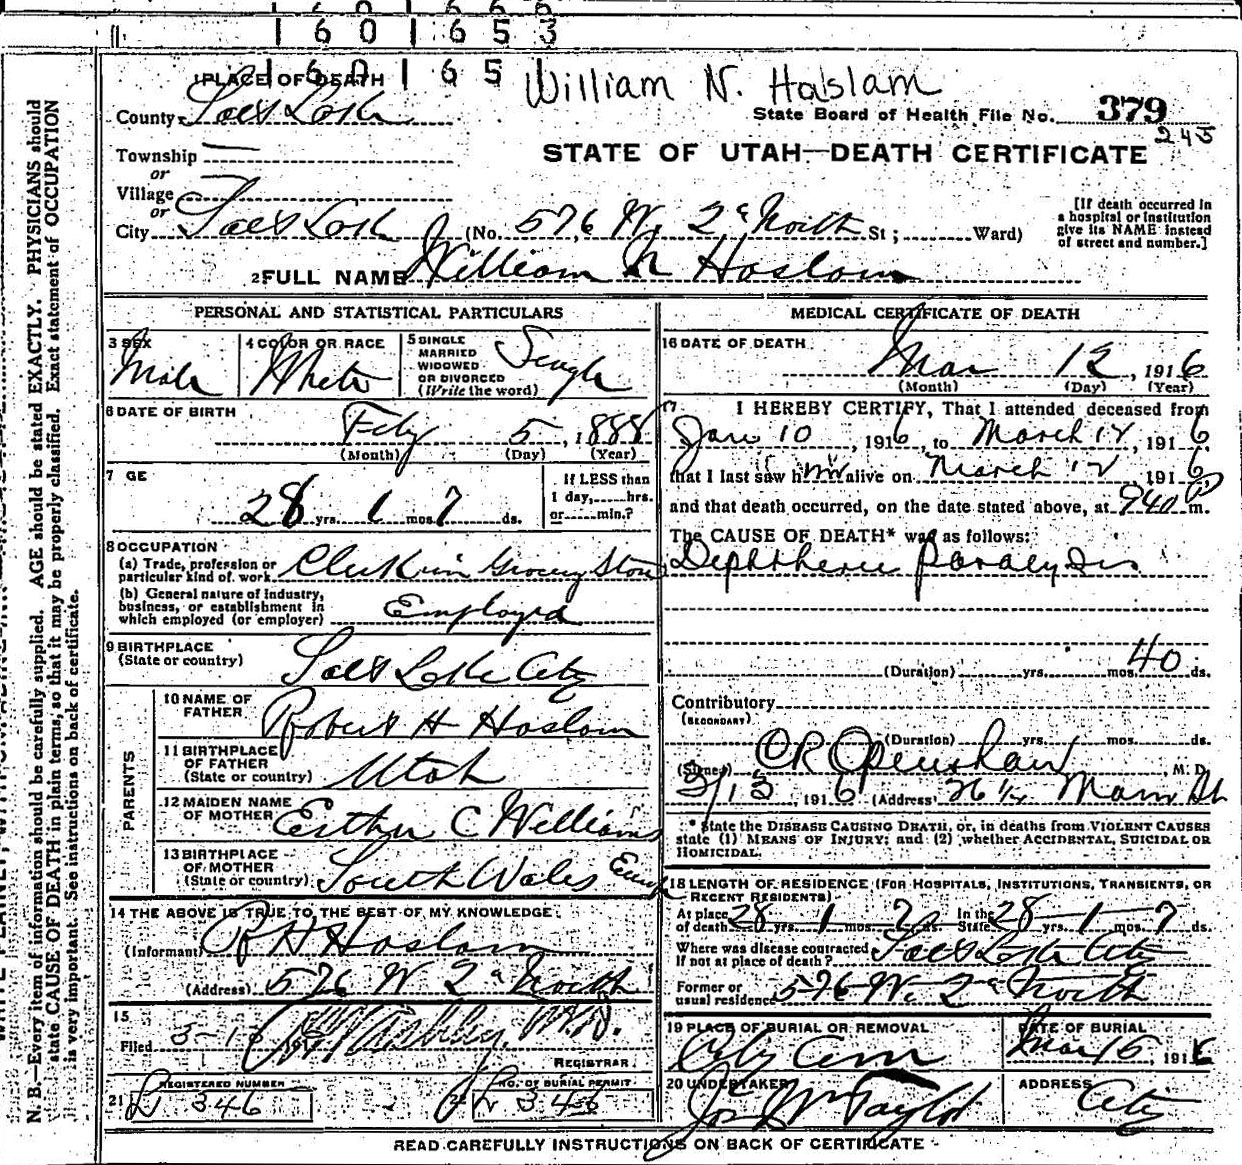 1 6 0 1 6 5 3
1 6 0 1 6 5 1
William N. Haslam
1 PLACE OF DEATH
County Salt Lake
State Board of Health File No. 379
245
Township
or
Village
or
STATE OF UTAH—DEATH CERTIFICATE
City Salt Lake (No. 576 W. 2d North St; Ward)
[If death occurred in
a hospital or institution
give its NAME instead
of street and number.]
2 FULL NAME William N Haslam
PERSONAL AND STATISTICAL PARTICULARS
3 SEX
Male
4 COLOR OR RACE
White
5 SINGLE
MARRIED
WIDOWED
OR DIVORCED
(Write the word)
Single
6 DATE OF BIRTH
Feby 5, 1888
(Month) (Day) (Year)
7 GE
28 yrs. 1 mos. 7 ds.
If LESS than
1 day, hrs.
or min.?
8 OCCUPATION
(a) Trade, profession or
particular kind of work Clerk in Grocery Store
(b) General nature of industry,
business, or establishment in
which employed (or employer) Employed
9 BIRTHPLACE
(State or country) Salt Lake City
PARENTS
10 NAME OF
FATHER Robert H Haslam
11 BIRTHPLACE
OF FATHER
(State or country) Utah
12 MAIDEN NAME
OF MOTHER Esther C Williams
13 BIRTHPLACE
OF MOTHER
(State or country) South Wales
14 THE ABOVE IS TRUE TO THE BEST OF MY KNOWLEDGE
(Informant) R H Haslam
(Address) 576 W 2d North
15
Filed 3-1 191
M.D.
REGISTRAR
21 REGISTERED NUMBER
L 346
22 NO. OF BURIAL PERMIT
L 346
MEDICAL CERTIFICATE OF DEATH
16 DATE OF DEATH
Mar 12, 1916
(Month) (Day) (Year)
17 I HEREBY CERTIFY, That I attended deceased from
Jan 10, 1916, to March 12, 1916
that I last saw him alive on March 12 1916
and that death occurred, on the date stated above, at 940 P m.
The CAUSE OF DEATH* was as follows:
Diphtheric Paralysis
(Duration) yrs. mos. 40 ds.
Contributory
(SECONDARY)
(Duration) yrs. mos. ds.
(Signed) O R Openshaw, M. D.
3/13, 1916 (Address) 26 1/2 Main St
* State the DISEASE CAUSING DEATH, or, in deaths from VIOLENT CAUSES
state (1) MEANS OF INJURY; and (2) whether ACCIDENTAL, SUICIDAL OR
HOMICIDAL.
18 LENGTH OF RESIDENCE (FOR HOSPITALS, INSTITUTIONS, TRANSIENTS, OR
RECENT RESIDENTS)
At place
of death 28 yrs. 1 mos. 7 ds. In the
State 28 yrs. 1 mos. 7 ds.
Where was disease contracted
If not at place of death? Salt Lake City
Former or
usual residence 576 W. 2d North
19 PLACE OF BURIAL OR REMOVAL
City Cem
DATE OF BURIAL
Mar 15, 1916
20 UNDERTAKER
Jos Wm Taylor
ADDRESS
City
READ CAREFULLY INSTRUCTIONS ON BACK OF CERTIFICATE
N. B.—Every item of information should be carefully supplied. AGE should be stated EXACTLY. PHYSICIANS should
state CAUSE OF DEATH in plain terms, so that it may be properly classified. Exact statement of OCCUPATION
is very important. See instructions on back of certificate.